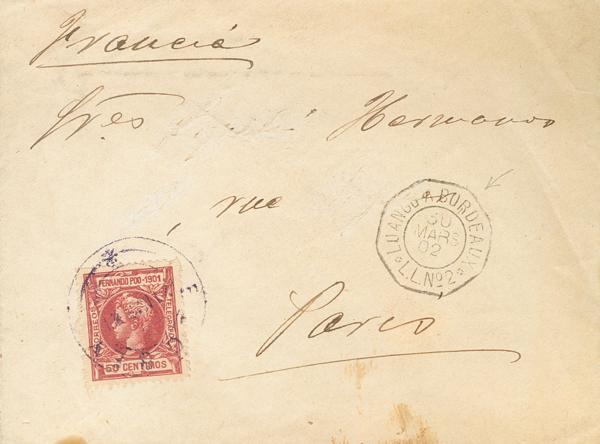 Francia
Sres Hermanos
, rue
LOANGO A BORDEAUX
30
MARS
02
L.L.Nº2
FERNANDO POO-1901
CORREOS
TELEGRAFOS
50 CENTIMOS
Paris,